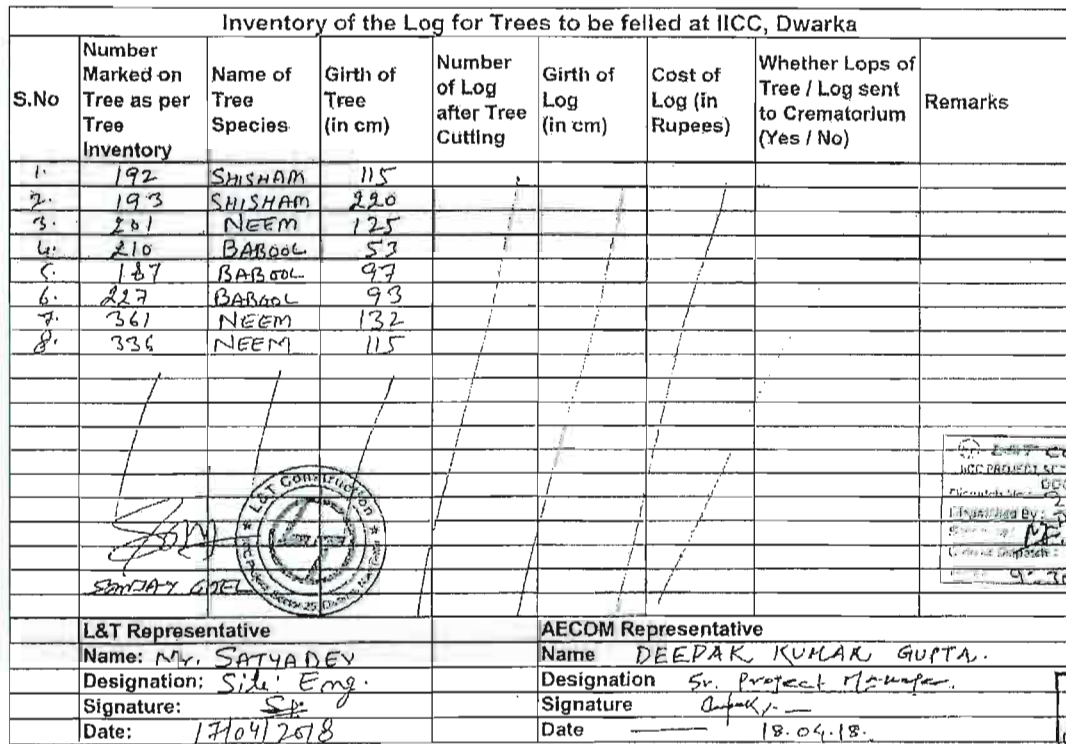 Inventory of the Log for Trees to be felled at IICC, Dwarka
S.No Number Marked on Tree as per Tree Inventory Name of Tree Species Girth of Tree (in cm) Number of Log after Tree Cutting Girth of Log (in cm) Cost of Log (in Rupees) Whether Lops of Tree / Log sent to Crematorium (Yes / No) Remarks
1. 192 SHISHAM 115
2. 193 SHISHAM 220
3. 201 NEEM 125
4. 210 BABOOL 53
5. 187 BABOOL 97
6. 227 BABOOL 93
7. 361 NEEM 132
8. 336 NEEM 115
L&T Construction
SANJAY GOEL
L&T Representative AECOM Representative
Name: Mr. SATYADEV Name DEEPAK KUMAR GUPTA.
Designation: Site Eng. Designation Sr. Project Manager.
Signature: Signature
Date: 17/04/2018 Date 18.04.18.